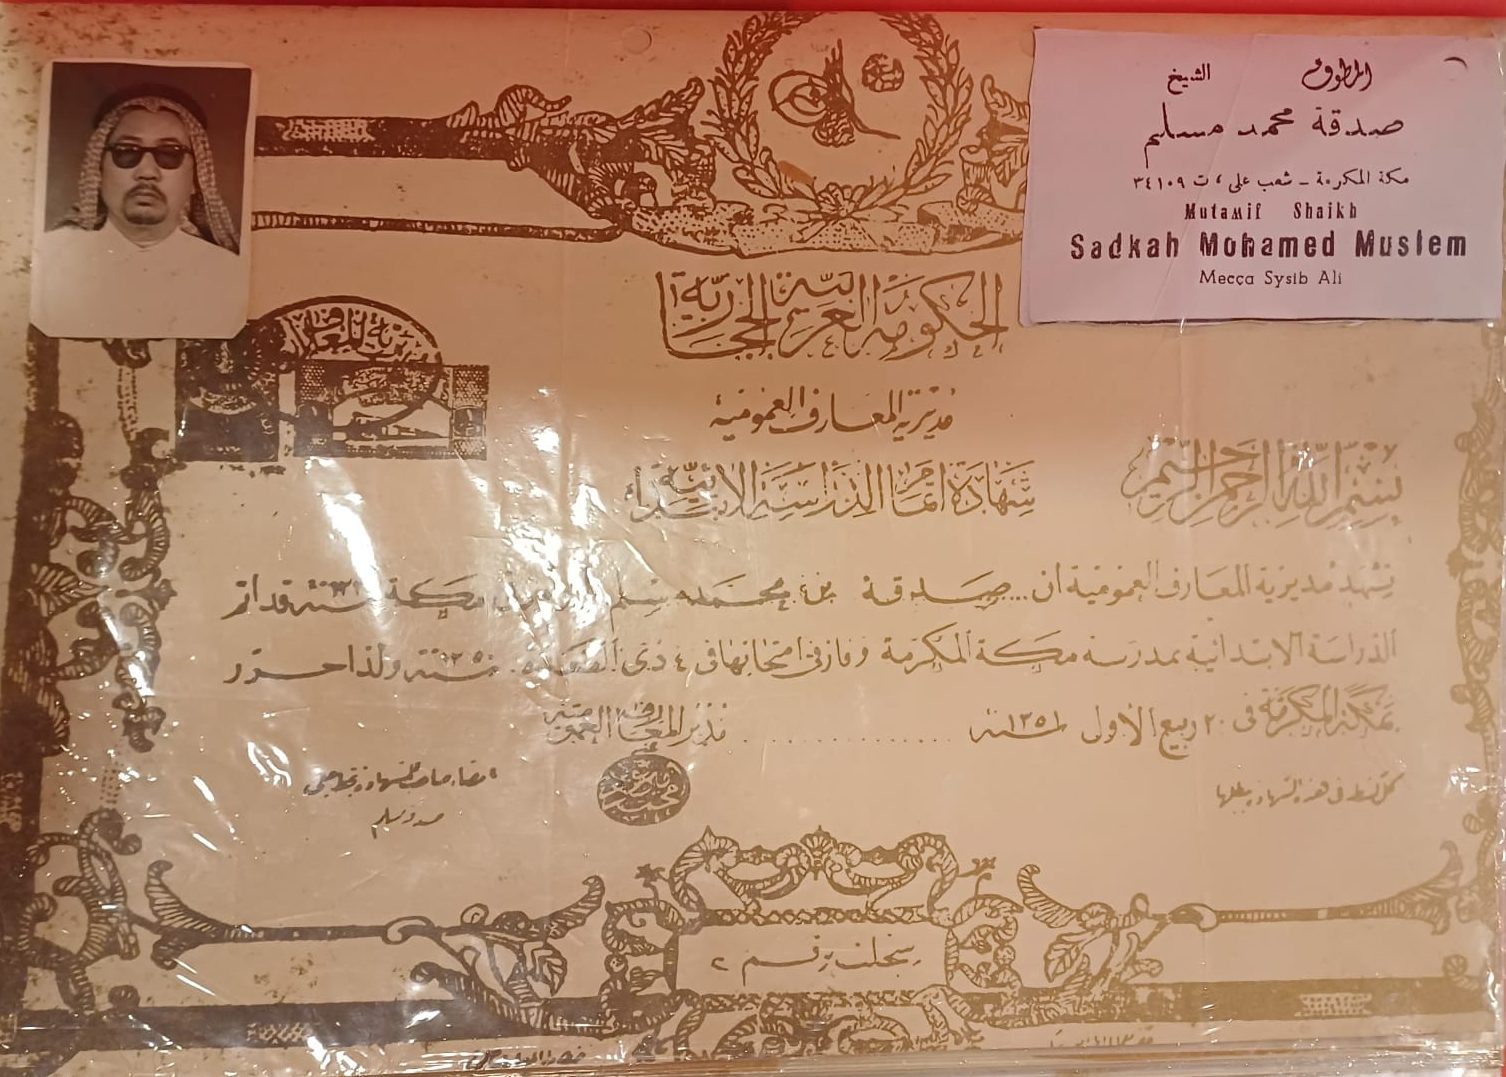 المطوف الشيخ
صدقة محمد مسلم
مكة المكرمة - شعب علي ، ت ٣٤١٠٩
Mutawif Shaikh
Sadkah Mohamed Muslem
Mecca Sysib Ali
الحكومة العربية الحجازية
مديرية المعارف العمومية
بسم الله الرحمن الرحيم
شهادة اتمام الدراسة الابتدائية
تشهد مديرية المعارف العمومية ان ... صدقة بن محمد مسلم مكة سنة قد اتم
الدراسة الابتدائية بمدرسة مكة المكرمة وفاز في امتحانها في ٤ ذي القعدة سنة ولذا حرر
بمكة المكرمة في ٢٠ ربيع الأول سنة ١٣٥١
مدير المعارف العمومية
كل كشط في هذه الشهادة يبطلها
امضاء صاحب الشهادة
سجلت برقم ٢